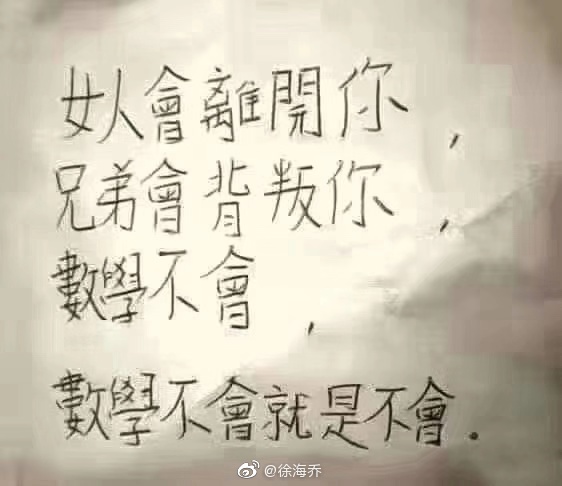 女人會離開你，
兄弟會背叛你，
數學不會，
數學不會就是不會.
@徐海乔